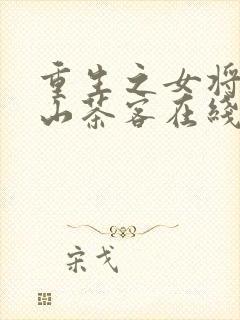 重生之女将
山茶客在线
宋戈